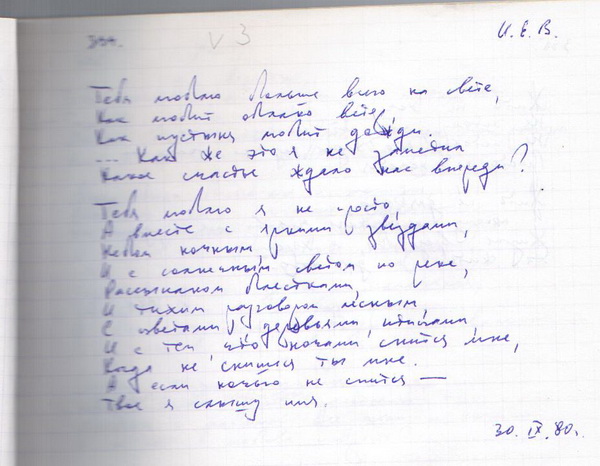 V 3
И. Е. В.
Тебя люблю больше всего на свете,
Как любит облако ветер,
Как пустыня любит дожди.
... Как же это я не заметил
Какое счастье ждало нас впереди?
Тебя люблю я не просто,
А вместе с яркими звёздами,
Небом ночным,
И с солнечным светом по реке,
Рассыпанном блёстками,
И тихим разговором лесным
С цветами, деревьями, птицами,
И с тем, что ночами снится мне,
Когда не снишься ты мне.
А если ночью не спится —
Твоё я слышу имя.
30. IX. 80г.